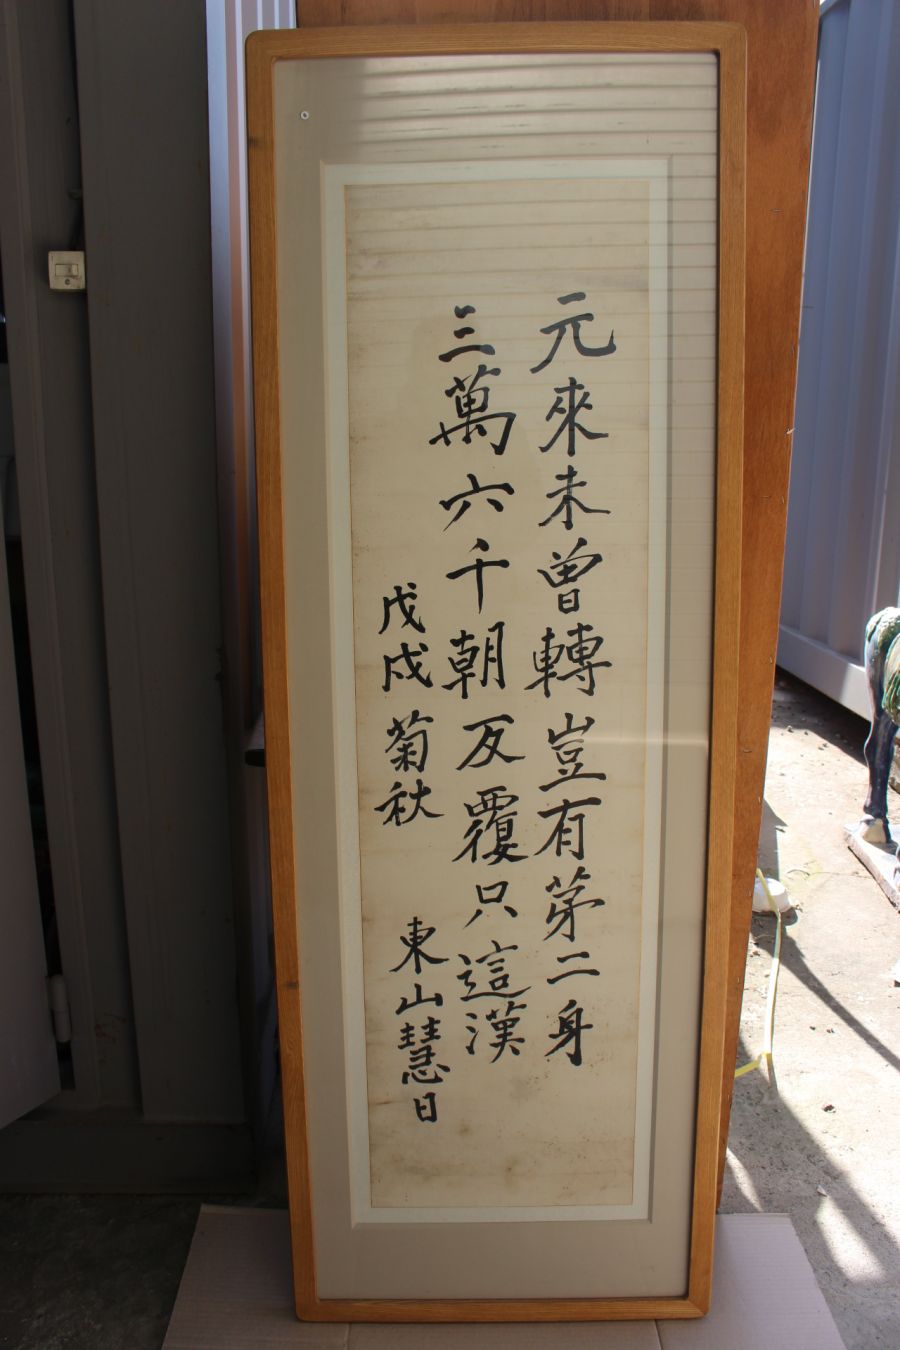 元來未曾轉豈有苐二身
三萬六千朝反覆只這漢
戊戍菊秋 東山慧日